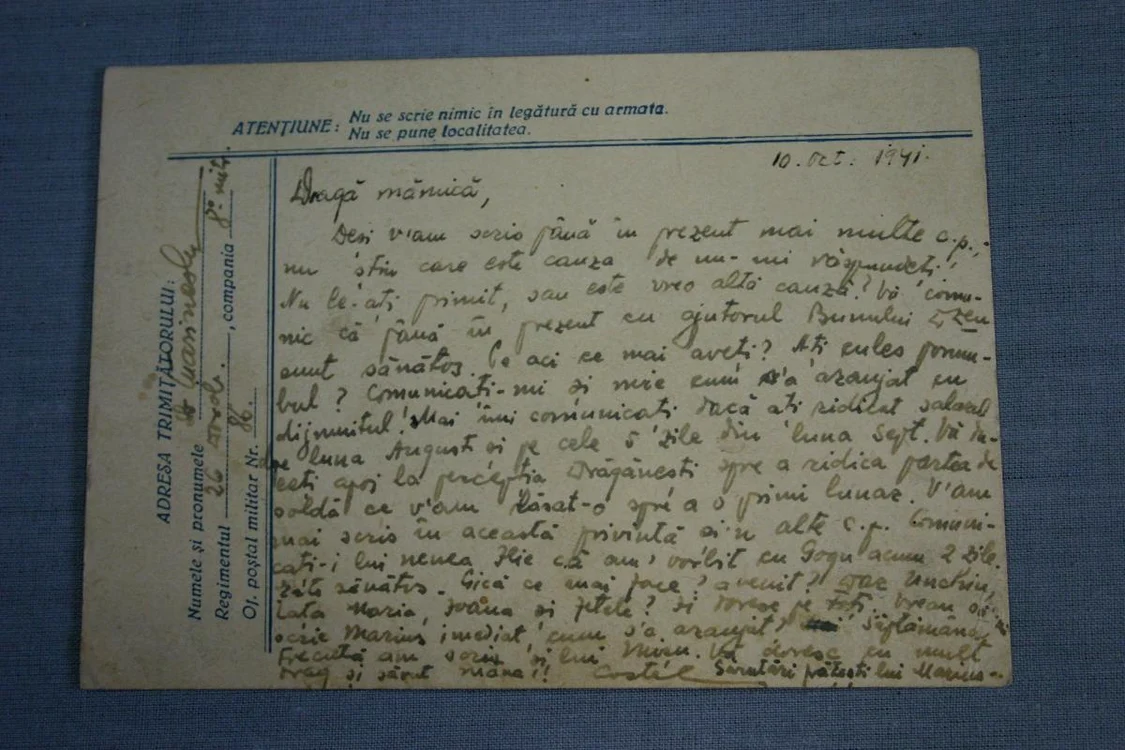 ATENȚIUNE: Nu se scrie nimic în legătură cu armata.
Nu se pune localitatea.
10. Oct. 1941.
Dragă mămică,
Deși v'am scris până în prezent mai multe c.p.,
nu știu care este cauza de nu-mi răspundeți.
Nu le-ați primit, sau este vreo altă cauză? Vă comu-
nic că până în prezent cu ajutorul Bunului Dzeu
sunt sănătos. Pe aci ce mai aveți? Ați cules porum-
bul? Comunicați-mi și mie cum s'a aranjat cu
dijmuitul! Mai îmi comunicați dacă ați ridicat salarul
pe luna August și pe cele 5 zile din luna Sept. Vă du-
ceți apoi la percepția Drăgănești spre a ridica partea de
soldă ce v'am lăsat-o spre a o primi lunar. V'am
mai scris în această privință și'n alte c.p. Comuni-
cați-i lui nenea Ilie că am vorbit cu Gogu acum 2 zile.
sănătos. Gică ce mai face? a venit? Dar Unchiu,
Tața Maria, Joana și fetele? Îi doresc pe toți. Vreau să-mi
scrie Marius imediat cum s'a aranjat? Săptămâna
trecută am scris și lui Vă doresc cu mult
drag și sărut mâna! Costel Sărutări lui Marius.
ADRESA TRIMIȚĂTORULUI:
Numele și pronumele
Regimentul 26 , compania 8-a mitr.
Of. poștal militar Nr. 86.